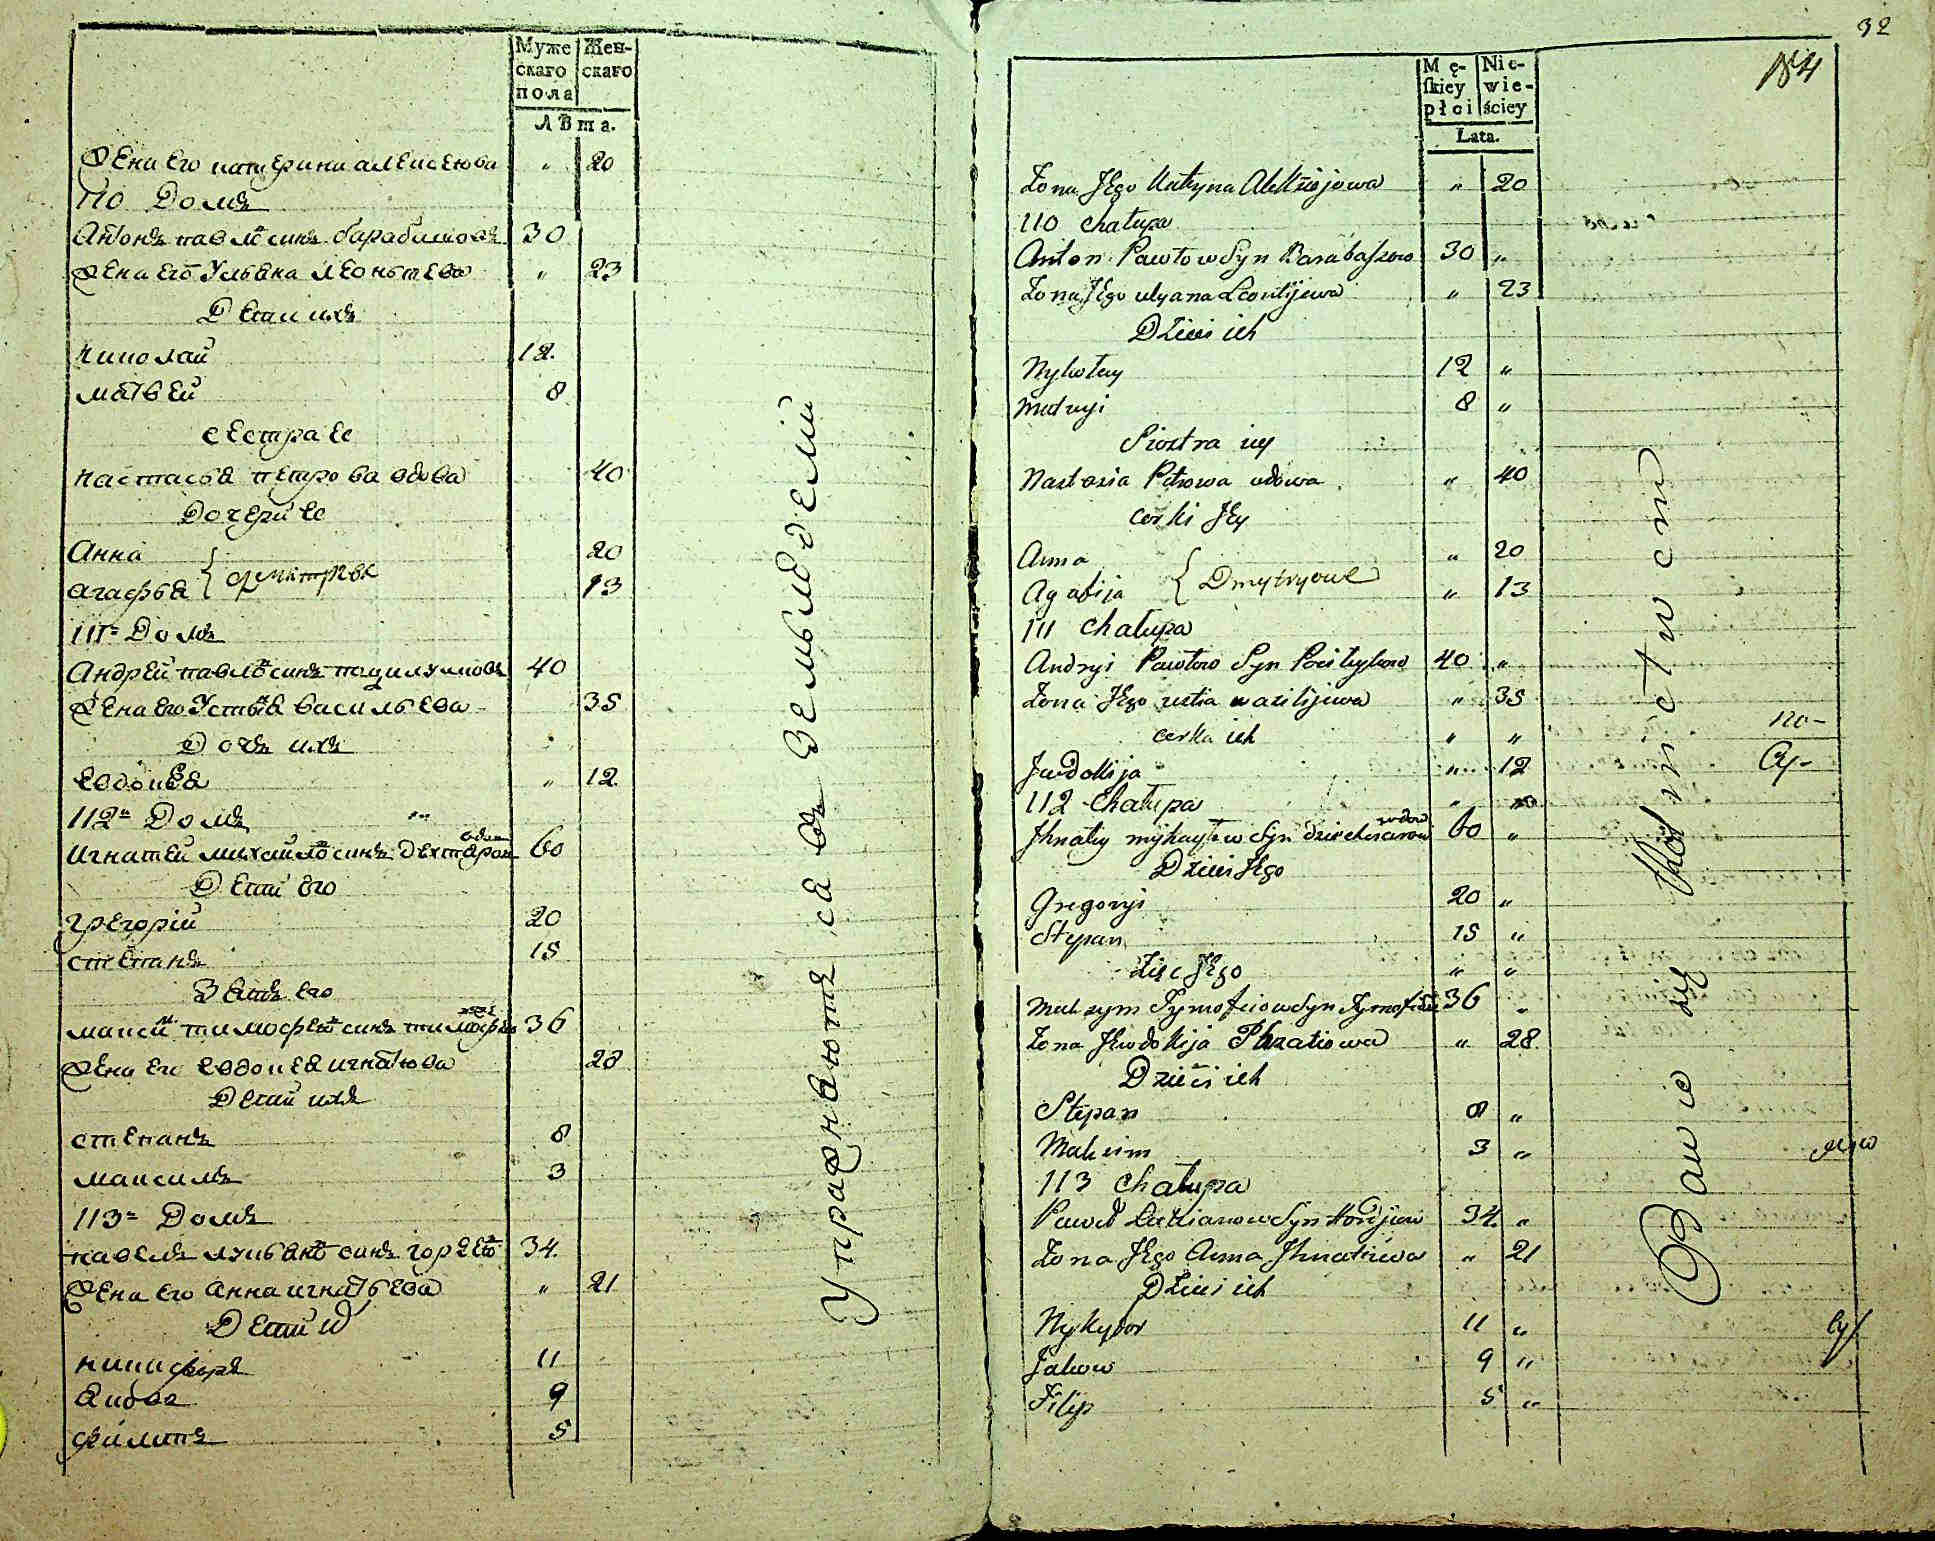 Муже Жен-
скаго скаго
пола
Лѣта.
Жена его катерина алексеюва " 20
110 Домъ
Антонъ павлѡ синъ барабашовъ 30
Жена его Ульяна леоньтева " 23
Дети ихъ
николай 12.
матвей 8
сестра ее
настасья петрова вдова 40
дочери ее
Анна 20
агафья { дмитрѣвы 13
111ъ Домъ
Андрей павлѡ синъ поцилуиковъ 40
Жена его Устья васильева 35
Дочь ихъ
евдокея " 12
112ъ Домъ
игнатей михайлѡ синъ дехтерои вдов 60
Дети его
грегорій 20
степанъ 15
Зять его
максй тимофеѡ синъ тимофее 36
Жена его евдокея игнатюва 28
Дети ихъ
степанъ 8
максимъ 3
113ъ Домъ
павелъ лукьянѡ синъ гордеѡ 34
Жена его анна игнатьева " 21
Дети и
никифоръ 11
яковъ 9
филипъ 5
Упражняются въ Земледелій
32
Mę- Nie-
ſkiey wie-
płci ściey
Lata.
Żona Jego Katryna Alexiejowa " 20
110 Chałupa
Anton Pawłow Syn Barabaszow 30 "
Żona Jego ulyana Leontijewa " 23
Dzieci ich
Nykołay 12 "
Matwyi 8 "
Siostra iey
Nastasia Petrowa wdowa " 40
Corki Jey
Anna " 20
Agafija { Dmytrowe " 13
111 Chałupa
Andryi Pawłow Syn Pociłuykow 40 "
Żona Jego ustia wasilijewa " 35
Corka ich " "
Jewdokija " 12
112 Chałupa
Jhnatiy myhayłow Syn dziechciarow wdow 60 "
Dzieci Jego
Gregoryi 20 "
Stepan 15 "
Zięć Jego " "
Maksym Tymofeiow Syn Tymofeiow 36 "
Żona Jewdokija Jhnatiowa " 28
Dzieci ich
Stepan 8 "
Maksim 3 "
113 Chałupa
Paweł Łukianow Syn Hordjiew 34 "
Żona Jego Anna Jhnatiewa " 21
Dzieci ich
Nykyfor 11 "
Jakow 9 "
Filip 5 "
Bawie się Rolnictwem